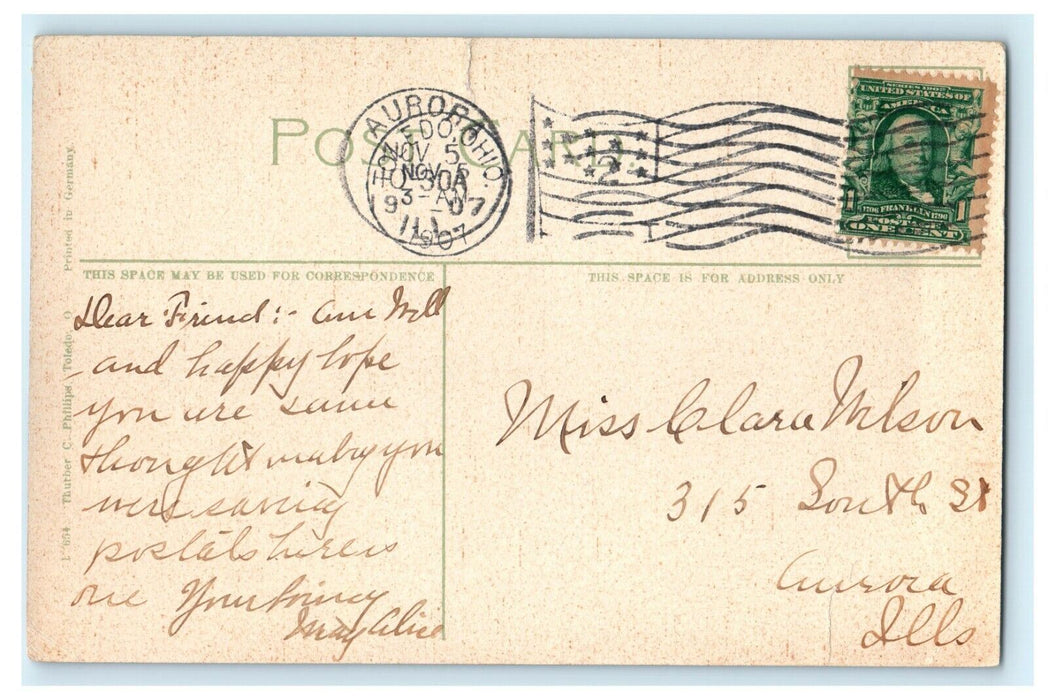 POST CARD
AURORA
TOLEDO, OHIO.
NOV 5
10-30A
1907
NOV 6
3-AM
ILL
1907
2
SERIES 1902
UNITED STATES OF
AMERICA
1 1
1706 FRANKLIN 1790
POSTAGE
ONE CENT
THIS SPACE MAY BE USED FOR CORRESPONDENCE
THIS SPACE IS FOR ADDRESS ONLY
Dear Friend:- am Well
and happy hope
you are same
thought maby you
were saving
postals here is
one Your
May Alice
Miss Clara Wilson
315 South St
Aurora
Ills
Thurber C. Phillips, Toledo, O. Printed in Germany.